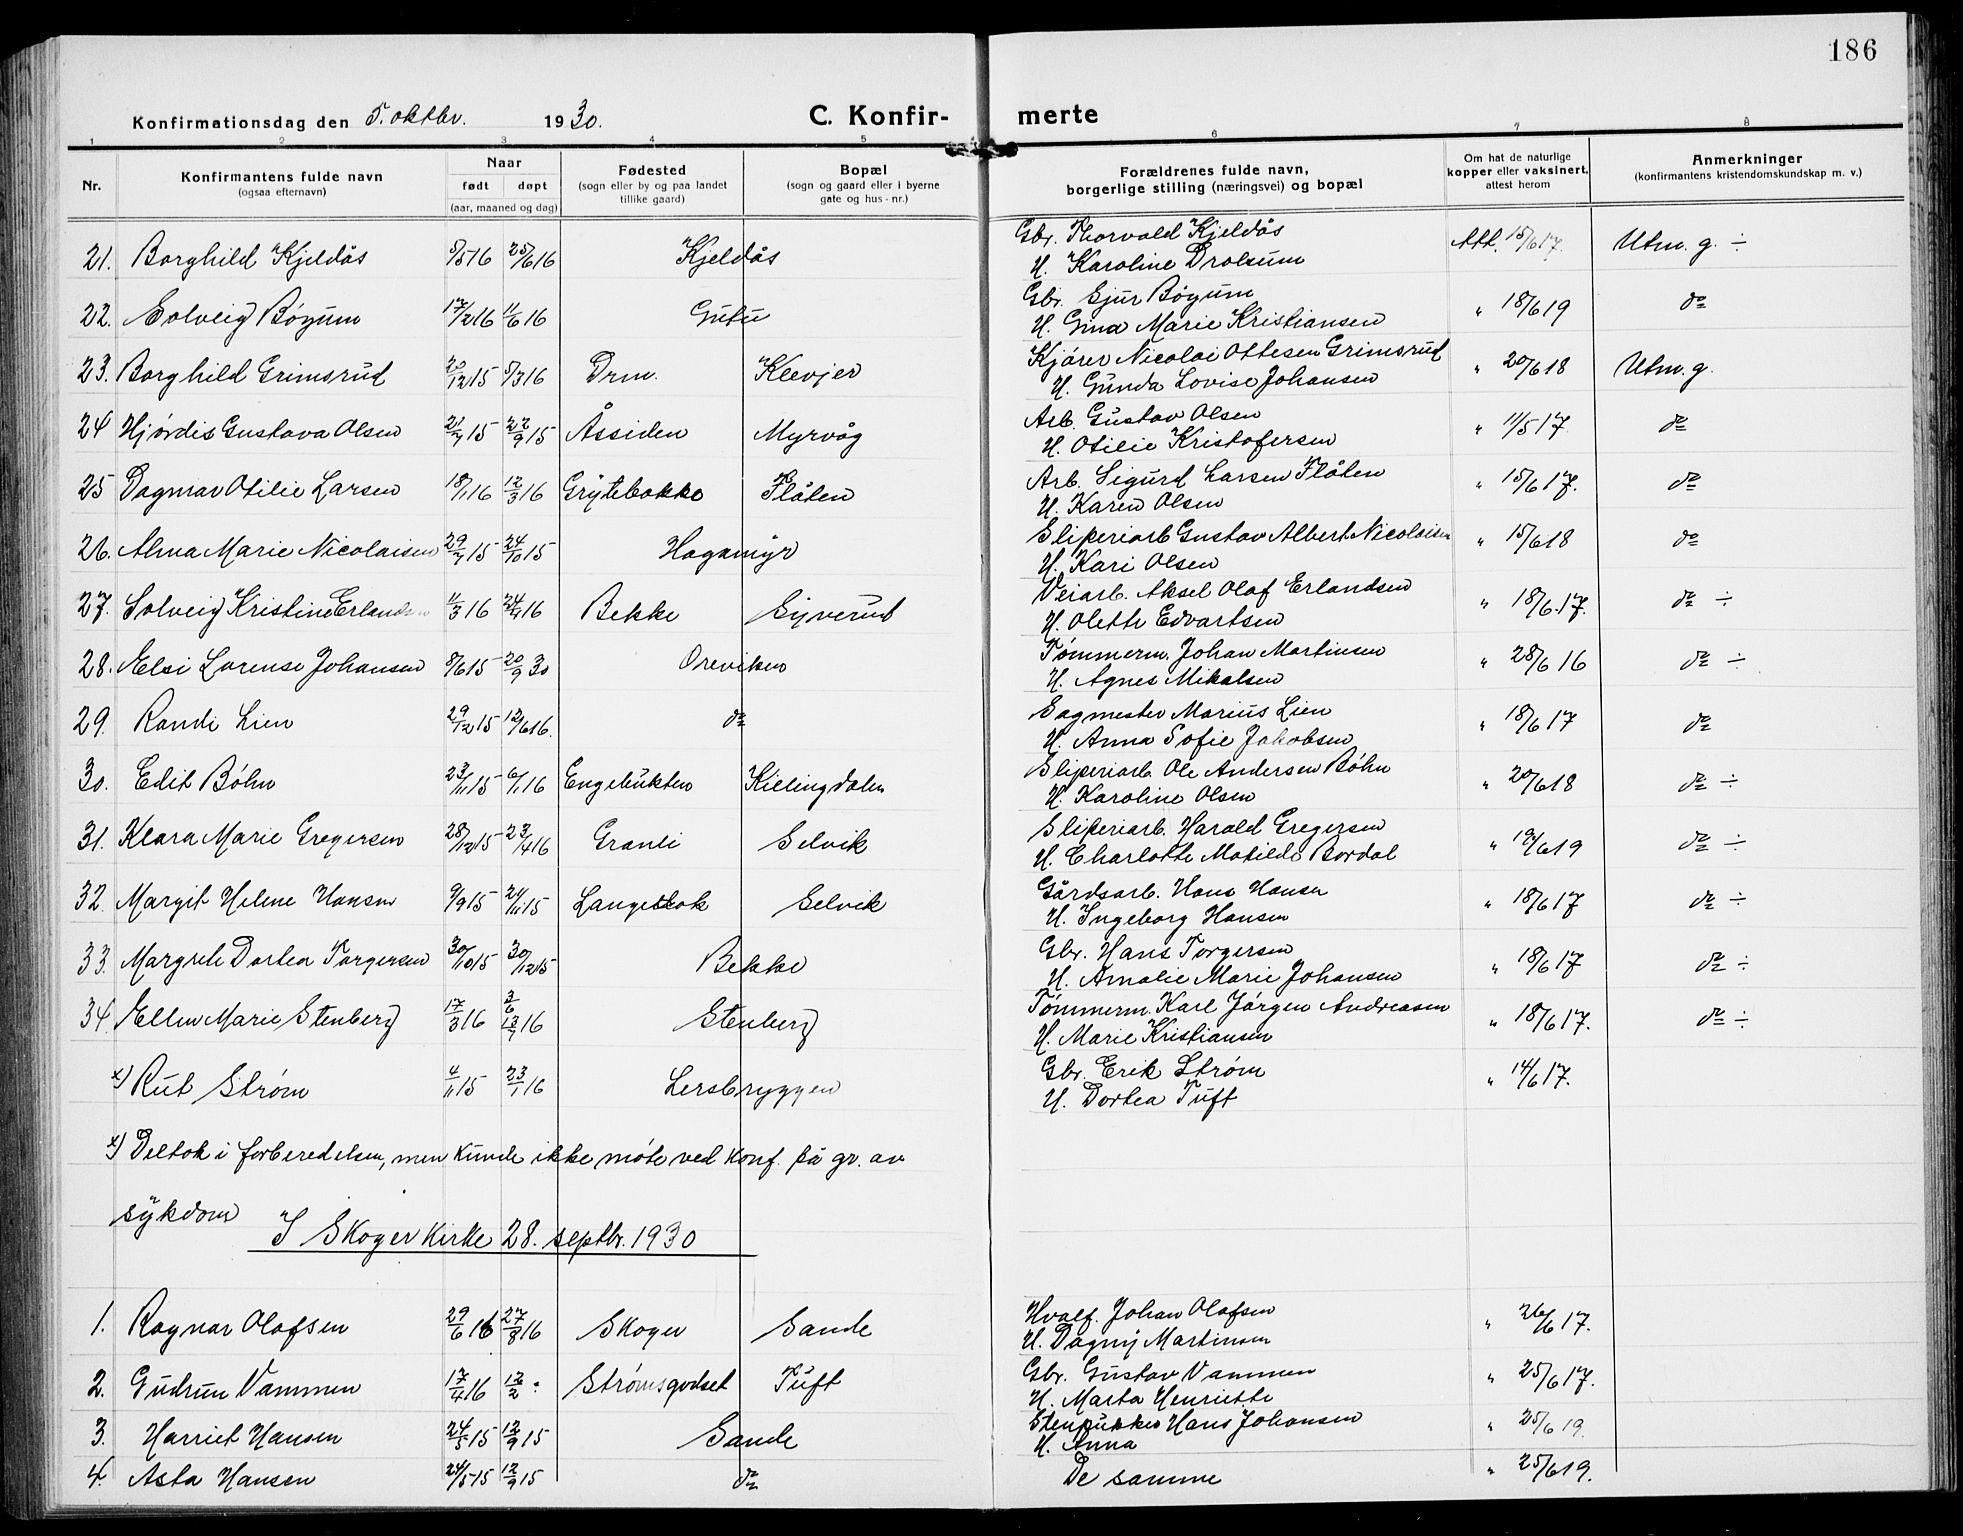 186
Konfirmationsdag den 5. oktbr. 1930. C. Konfirmerte
1 2 3 4 5 6 7 8
Nr. Konfirmantens fulde navn (ogsaa efternavn) Naar født døpt (aar, maaned og dag) Fødested (sogn eller by og paa landet tillike gaard) Bopæl (sogn og gaard eller i byerne gate og hus-nr.) Forældrenes fulde navn, borgerlige stilling (næringsvei) og bopæl Om hat de naturlige kopper eller vaksinert, attest herom Anmerkninger (konfirmantens kristendomskundskap m. v.)
21. Borghild Kjeldås 5/5 16 25/6 16 Kjeldås Gbr. Thorvald Kjeldås Att. 15/6 17. Utm. g. ÷
H. Karoline Drolsum
22. Solveig Bøyum 17/2 16 11/6 16 Gutu Gbr. Sjur Bøyum " 18/6 19 do
H. Gina Marie Kristiansen
23. Borghild Grimsrud 20/12 15 5/3 16 Drm. Klevjer Kjører Nicolai Ottesen Grimsrud " 20/6 18 Utm. g.
H. Gunda Lovise Johansen
24 Hjørdis Gustava Olsen 21/7 15 22/9 15 Åssiden Myrvåg Arb. Gustav Olsen " 11/5 17 do
H. Otilie Kristofersen
25 Dagmar Otilie Larsen 18/1 16 12/3 16 Grytebakke Flåten Arb. Sigurd Larsen Flåten " 15/6 17. do
H. Karen Olsen
26. Alma Marie Nicolaisen 29/7 15 24/10 15 Hagamyr Sliperiarb Gustav Albert Nicolaisen " 15/6 18 do
H. Kari Olsen
27. Solveig Kristine Erlandsen 11/3 16 24/4 16 Bekke Syverud Veiarb. Aksel Olaf Erlandsen " 18/6. 17. do ÷
H. Olette Edvartsen
28. Elsi Lorense Johansen 8/6 15 20/9 30 Oreviken Tømmerm. Johan Martinsen " 28/6 16 do ÷
H. Agnes Mikalsen
29. Randi Lien 29/12 15 12/6 16. do Sagmester Marius Lien " 18/6 17 do
H. Anna Sofie Jakobsen
30. Edit Bøhn 23/11 15 6/1 16 Engebukten Kielingdalen Sliperiarb. Ole Andersen Bøhn " 20/6 18 do ÷
H. Karoline Olsen
31. Klara Marie Gregersen 28/12 15 23/4 16 Granli Selvik Sliperiarb. Harald Gregersen " 19/6 19 do ÷
H. Charlotte Matilde Bordal
32. Margit Helene Hansen 9/9 15 21/11 15 Langestok Selvik Gårdsarb. Hans Hansen " 18/6 17 do ÷
H. Ingeborg Hansen
33. Margrete Dortea Torgersen 30/10 15 30/12 15 Bekke Gbr. Hans Torgersen " 18/6 17 do ÷
H. Amalie Marie Johansen
34. Ellen Marie Stenberg 17/3 16 2/6 13/7 16 Stenberg Tømmerm. Karl Jørgen Andreasen " 18/6 17. do ÷
H. Marie Kristiansen
x) Rut Strøm 4/11 15 23/1 16 Lersbryggen Gbr. Erik Strøm " 14/6 17.
H. Dortea Tuft
x) Deltok i forberedelsen, men kunde ikke møte ved konf. på gr. av
sykdom
I Skoger kirke 28. septbr. 1930
1. Ragnar Olafsen 29/6 16 27/8 16 Skoger Sande Hvalf. Johan Olafsen " 26/6 17.
H. Dagny Martinsen
2. Gudrun Vammen 17/4 16 12/2 " Strømsgodset Tuft Gbr. Gustav Vammen " 25/6 17.
H. Marta Henriette
3. Harriet Hansen 24/5 15 12/9 15 Sande Stenpukker Hans Johansen " 25/6 19.
H. Anna
4. Asta Hansen 24/5 15 12/9 15 do De samme " 25/6 19.